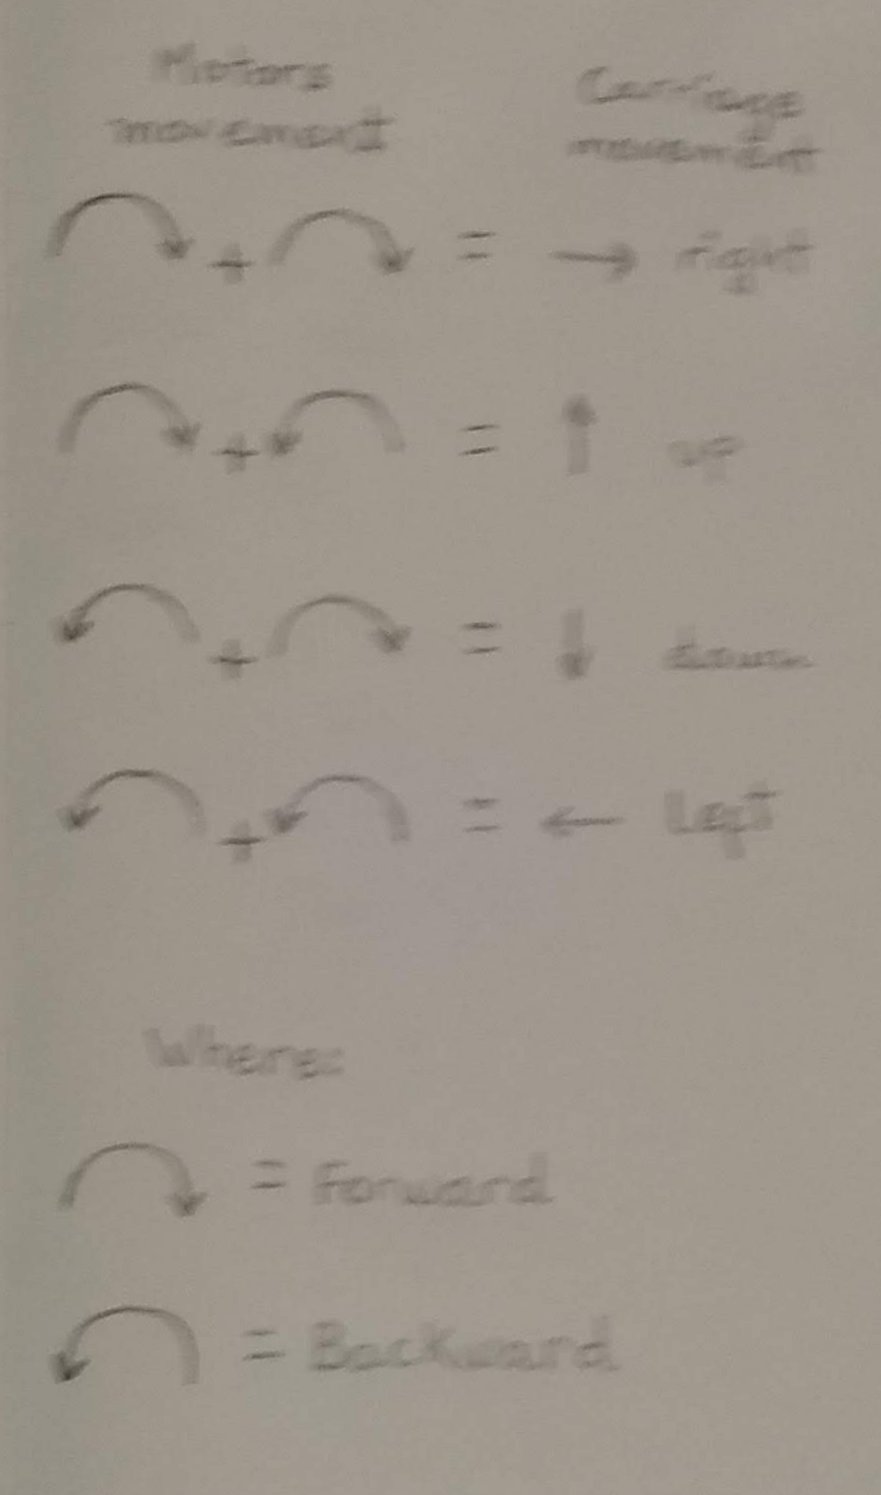 Motors
movement
Carriage
movement
+ = → right
+ = ↑ up
+ = ↓ down
+ = ← Left
Where:
= Forward
= Backward